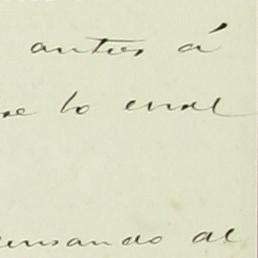 antes á
se lo cual
ensando al